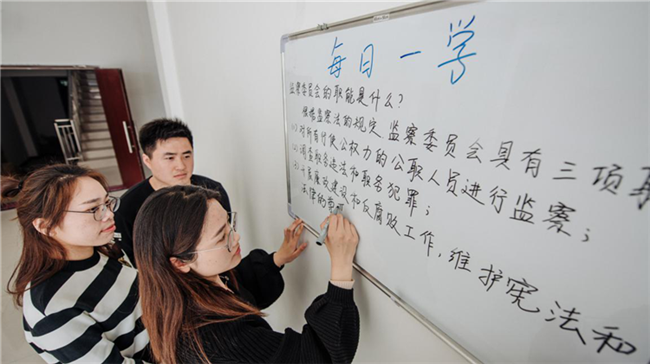 每日一学
监察委员会的职能是什么?
根据监察法的规定,监察委员会具有三项职
(1)对所有行使公权力的公职人员进行监察;
(2)调查职务违法和职务犯罪;
(3)开展廉政建设和反腐败工作,维护宪法和
法律的尊